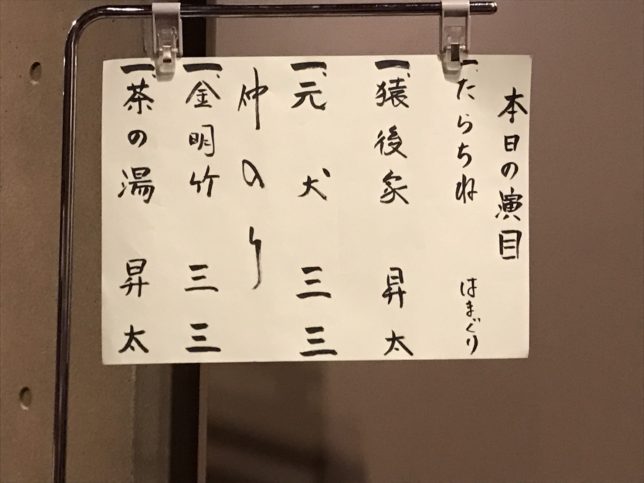 本日の演目
一、たらちね はまぐり
一、猿後家 昇太
一、元犬 三三
仲入り
一、金明竹 三三
一、茶の湯 昇太